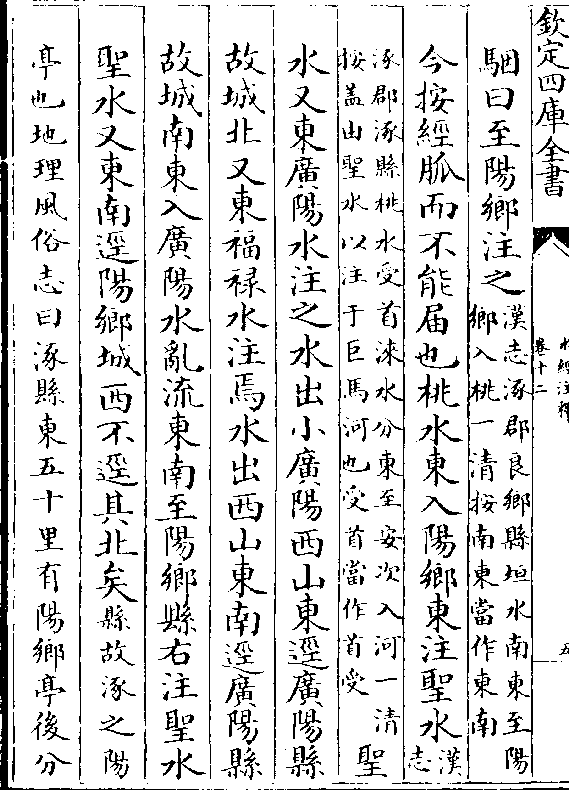 欽定四庫全書
水經注釋
卷十二
五
駰曰至陽鄉注之
漢志涿郡良鄉縣垣水南東至陽
鄉入桃一清按南東當作東南
今按經脈而不能届也桃水東入陽鄉東注聖水
漢志
涿郡涿縣桃水受首淶水分東至安次入河一清
按盖山聖水以注于巨馬河也受首當作首受
聖
水又東廣陽水注之水出小廣陽西山東逕廣陽縣
故城北又東福禄水注焉水出西山東南逕廣陽縣
故城南東入廣陽水亂流東南至陽鄉縣右注聖水
聖水又東南逕陽鄉城西不逕其北矣縣故涿之陽
亭也地理風俗志曰涿縣東五十里有陽鄉亭後分